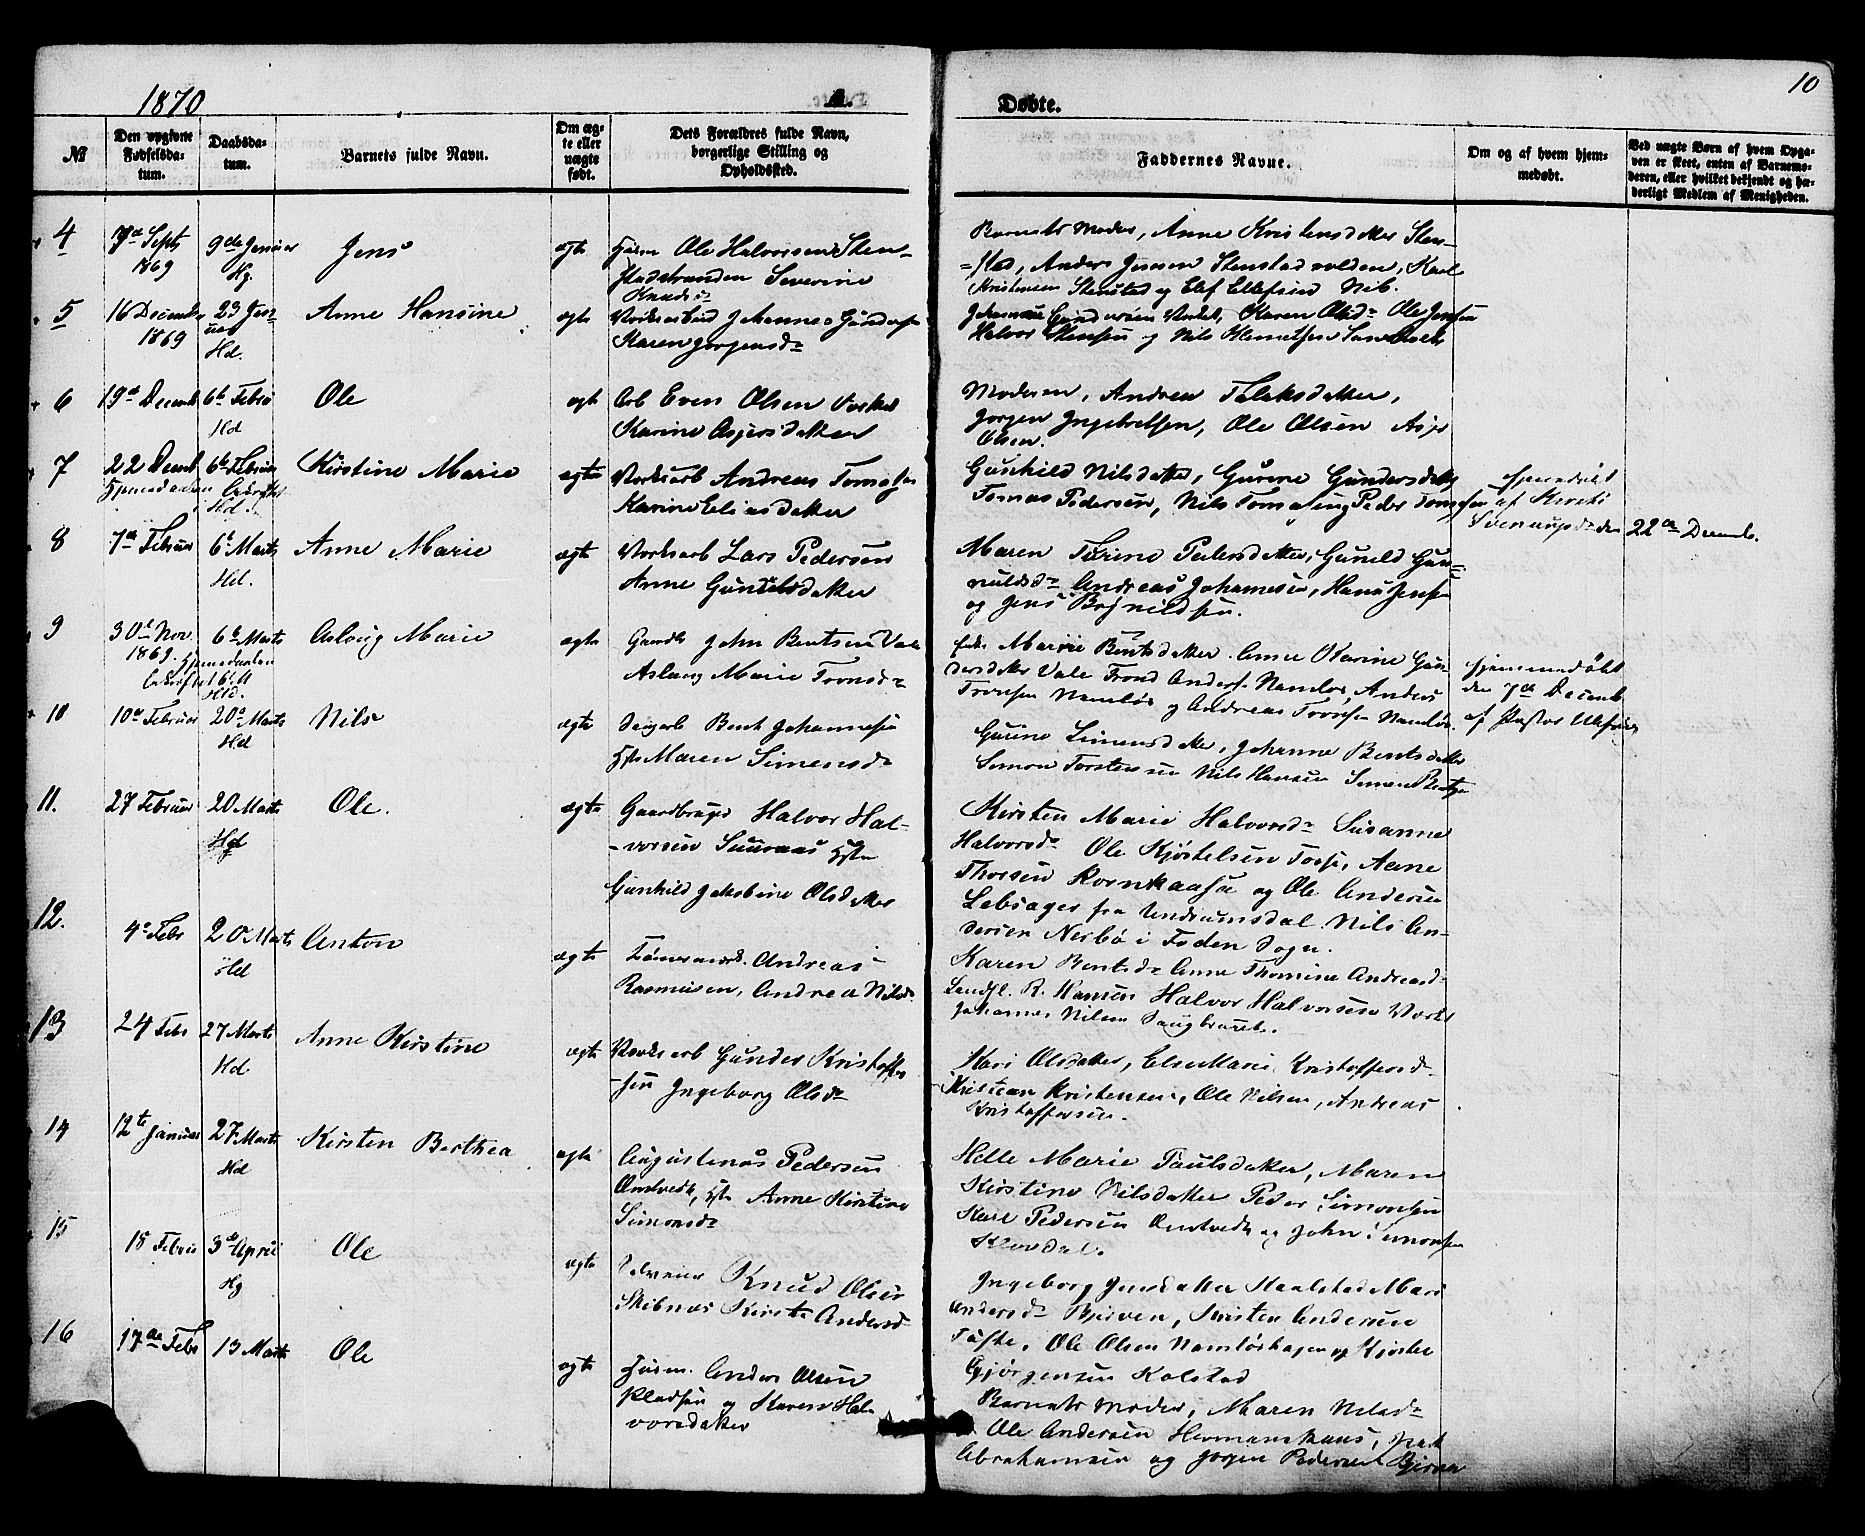 1870
A.
Døbte.
10
№
Den opgivne Fødselsdatum.
Daabsdatum.
Barnets fulde Navn.
Om ægte eller uægte født.
Dets Forældres fulde Navn, borgerlige Stilling og Opholdssted.
Faddernes Navne.
Om og af hvem hjemmedøbt.
Ved uægte Børn af hvem Opgaven er skeet, enten af Barnemoderen, eller hvilket bekjendt og hæderligt Medlem af Menigheden.
4
Septb
1869
9de Januar
Hg.
Jens
ægte
Husm Ole Halvorsen Sten-
stadstranden Severine
Knudsd
Barnets Moder, Anne Kristensdatter Sten-
=stad, Anders Jensen Stenstadvolden, Karl
Kristensen Stenstad og Elef Ellefsen Nib.
5
16 Decemb
1869
23 Jan-
uar
Hd.
Anne Hansine
ægte
Værksarbeid Johannes Gunders
Karen Jørgensd
Johannes Gundersen Værket, Karen Olsd Ole Jensen
Halvor Stensen og Nils Klemetsen
6
19de Decemb
6te Febru
Hd
Ole
ægte
Arb Even Olsen Værket
Karine Asjersdatter
Moderen, Andrea
Jørgen Ingebretsen, Ole Olsen
Olsen.
7
22 Decemb
Hjemmedaaben
6te Februar
bekræftet
Hd.
Kirstine Marie
ægte
Værksarb Andreas Tomasen
Karine Eliasdatter
Gunhild Nilsdatter, Gurine Gundersdatter
Tomas Pedersen, Nils Tomasen og Peder Tomasen
hjemmedøbt
af
den 22de Decemb.
8
7de Februar
6te Marts
Hd.
Anne Marie
ægte
Værksarb Lars Pedersen
Anne Gunildsdatter
Maren Torine Pedersdatter, Gunild Gun=
nuldsd Andreas Johannesen, Hans Jensen
og Jens Bojnildsen.
9
30te Nov.
1869. Hjemmedaaben
bekræftet
6te Marts
Hd.
Aslaug Marie
ægte
Gaardb John Bentsen Vale
Aslaug Marie Tronsd
Marie Bentsdatter Anne Karine Gun
dersdatter Vale Trond Anders. Namløs, Anders
Tronsen Namløs og Andreas Tronsen Namløs.
hjemmedøbt
den 7de Decemb
af Pastor
10
10de Februar
20de Marts
Hd
Nils
ægte
Bent Johannesen
Hst Maren Simensd
Gurine Simensdatter, Johanne Bentsdatter
Simon Torstensen Nils Hansen Simon Bentsen
11.
27 Februar
20 Marts
Hd
Ole.
ægte
Gaardbruger Halvor Hal-
-vorsen Suuraas Hstr
Gunhild Jakobine Olsdatter
Kirsten Marie Halvorsd Susanne
Halvorsd Ole Kjøstelsen Torp, Arne
Thorsen og Ole Andersen
Lebsager fra Nils An-
dersen Nerbø i Sogn.
12.
4de Febr
20 Marts
Hd
Anton
ægte
Tømmerm. Andreas
Rasmusen, Andrea Nilsd
Karen Bentsd Anne Thomine Andreasd
R. Hansen Halvor Halvorsen Værket
Johannes Nilsen
13
24 Febr
27 Marts
Hd.
Anne Kirstine
ægte
Værksarb Gunder Kristoffer
-sen Ingeborg Olsd
Kari Olsdatter, Else Marie Kristoffersd
Kristian Kristensen, Ole Nilsen, Andreas
Kristoffersen.
14
12te Januar
27. Marts
Hd
Kirsten Berthea
ægte
Augustinus Pedersen
Omtvedt, Hstr Anne Kirstine
Simonsd
Helle Marie Paulsdatter, Maren
Kirstine Nilsdatter Peder Simonsen
Karl Pedersen Omtvedt og John Simonsen
15
18 Februar
3de April
Hg
Ole
ægte
Selveier Knud Olsen
Skibnæs Kirste Andersd
Ingeborg Jensdatter Mari
Andersd Bjerven, Kristen Andersen
Tufte, Ole Olsen Namløshagen og Kjøstel
Gjørgensen Kolstad
16
17de Febr
13 Marts
Ole
ægte
Husm. Anders Olsen
Pladsen og Karen Hal-
vorsdatter
Barnets Moder, Maren Nilsd
Ole Andersen
Abrahamsen og Jørgen Pedersen Bjerva